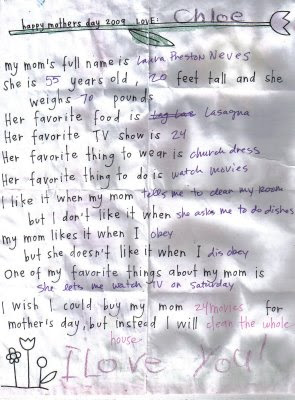 happy mothers day 2009 LOVE: Chloe
my mom's full name is Laura Preston Neves
She is 55 years old, 20 feet tall and she
weighs 70 pounds
Her favorite food is Lasagna
Her favorite TV show is 24
Her favorite thing to wear is church dress
Her favorite thing to do is watch movies
I like it when my mom tells me to clean my room
but I don't like it when she asks me to do dishes
my mom likes it when I obey
but she doesn't like it when I disobey
One of my favorite things about my mom is
she lets me watch TV on saturday
I wish I could buy my mom 24 movies for
mother's day, but instead I will clean the whole
house
I Love You!